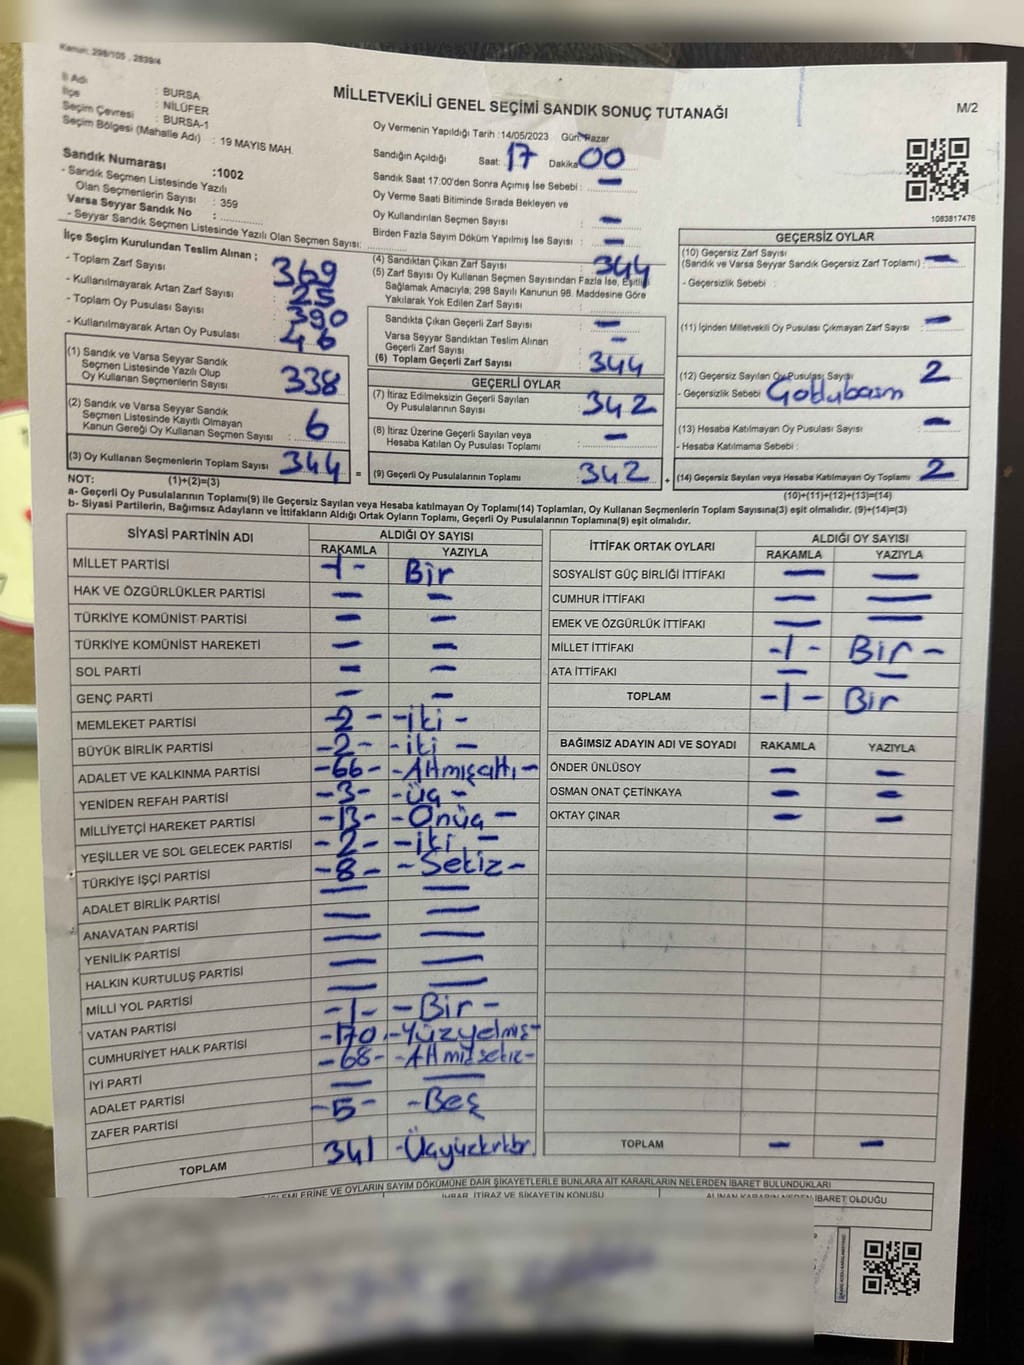 Kanun: 298/105 , 2839/4
İl Adı : BURSA
İlçe : NİLÜFER
Seçim Çevresi : BURSA-1
Seçim Bölgesi (Mahalle Adı) : 19 MAYIS MAH.
MİLLETVEKİLİ GENEL SEÇİMİ SANDIK SONUÇ TUTANAĞI
M/2
Oy Vermenin Yapıldığı Tarih :14/05/2023 Gün: Pazar
Sandığın Açıldığı Saat: 17 Dakika 00
Sandık Saat 17:00'den Sonra Açımış İse Sebebi : —
Oy Verme Saati Bitiminde Sırada Bekleyen ve
Oy Kullandırılan Seçmen Sayısı —
Birden Fazla Sayım Döküm Yapılmış İse Sayısı : —
1083817476
Sandık Numarası :1002
- Sandık Seçmen Listesinde Yazılı
Olan Seçmenlerin Sayısı : 359
Varsa Seyyar Sandık No :
- Seyyar Sandık Seçmen Listesinde Yazılı Olan Seçmen Sayısı:
İlçe Seçim Kurulundan Teslim Alınan ;
- Toplam Zarf Sayısı 369
- Kullanılmayarak Artan Zarf Sayısı : 25
- Toplam Oy Pusulası Sayısı 390
- Kullanılmayarak Artan Oy Pusulası 46
(1) Sandık ve Varsa Seyyar Sandık
Seçmen Listesinde Yazılı Olup
Oy Kullanan Seçmenlerin Sayısı 338
(2) Sandık ve Varsa Seyyar Sandık
Seçmen Listesinde Kayıtlı Olmayan
Kanun Gereği Oy Kullanan Seçmen Sayısı : 6
(3) Oy Kullanan Seçmenlerin Toplam Sayısı 344 =
(1)+(2)=(3)
(4) Sandıktan Çıkan Zarf Sayısı : 344
(5) Zarf Sayısı Oy Kullanan Seçmen Sayısından Fazla İse, Eşitliği
Sağlamak Amacıyla, 298 Sayılı Kanunun 98. Maddesine Göre
Yakılarak Yok Edilen Zarf Sayısı :
Sandıkta Çıkan Geçerli Zarf Sayısı —
Varsa Seyyar Sandıktan Teslim Alınan
Geçerli Zarf Sayısı —
(6) Toplam Geçerli Zarf Sayısı 344
GEÇERLİ OYLAR
(7) İtiraz Edilmeksizin Geçerli Sayılan
Oy Pusulalarının Sayısı 342
(8) İtiraz Üzerine Geçerli Sayılan veya
Hesaba Katılan Oy Pusulası Toplamı —
(9) Geçerli Oy Pusulalarının Toplamı : 342 +
GEÇERSİZ OYLAR
(10) Geçersiz Zarf Sayısı
(Sandık ve Varsa Seyyar Sandık Geçersiz Zarf Toplamı) : —
- Geçersizlik Sebebi :
(11) İçinden Milletvekili Oy Pusulası Çıkmayan Zarf Sayısı : —
(12) Geçersiz Sayılan Oy Pusulası Sayısı 2
- Geçersizlik Sebebi
(13) Hesaba Katılmayan Oy Pusulası Sayısı : —
- Hesaba Katılmama Sebebi :
(14) Geçersiz Sayılan veya Hesaba Katılmayan Oy Toplamı : 2
(10)+(11)+(12)+(13)=(14)
NOT:
a- Geçerli Oy Pusulalarının Toplamı(9) ile Geçersiz Sayılan veya Hesaba katılmayan Oy Toplamı(14) Toplamları, Oy Kullanan Seçmenlerin Toplam Sayısına(3) eşit olmalıdır. (9)+(14)=(3)
b- Siyasi Partilerin, Bağımsız Adayların ve İttifakların Aldığı Ortak Oyların Toplamı, Geçerli Oy Pusulalarının Toplamına(9) eşit olmalıdır.
SİYASİ PARTİNİN ADI ALDIĞI OY SAYISI
RAKAMLA YAZIYLA
MİLLET PARTİSİ -1- Bir
HAK VE ÖZGÜRLÜKLER PARTİSİ — —
TÜRKİYE KOMÜNİST PARTİSİ — —
TÜRKİYE KOMÜNİST HAREKETİ — —
SOL PARTİ — —
GENÇ PARTİ — —
MEMLEKET PARTİSİ -2- -iki-
BÜYÜK BİRLİK PARTİSİ -2- -iki-
ADALET VE KALKINMA PARTİSİ -66- -Altmışaltı-
YENİDEN REFAH PARTİSİ -3- -üç-
MİLLİYETÇİ HAREKET PARTİSİ -13- -Onüç-
YEŞİLLER VE SOL GELECEK PARTİSİ -2- -iki-
TÜRKİYE İŞÇİ PARTİSİ -8- -Sekiz-
ADALET BİRLİK PARTİSİ — —
ANAVATAN PARTİSİ — —
YENİLİK PARTİSİ — —
HALKIN KURTULUŞ PARTİSİ — —
MİLLİ YOL PARTİSİ — —
VATAN PARTİSİ -1- -Bir-
CUMHURİYET HALK PARTİSİ -170- -Yüzyetmiş-
İYİ PARTİ -68- -Altmışsekiz-
ADALET PARTİSİ — —
ZAFER PARTİSİ -5- -Beş
TOPLAM 341 -Üçyüzkırkbir
İTTİFAK ORTAK OYLARI ALDIĞI OY SAYISI
RAKAMLA YAZIYLA
SOSYALİST GÜÇ BİRLİĞİ İTTİFAKI — —
CUMHUR İTTİFAKI — —
EMEK VE ÖZGÜRLÜK İTTİFAKI — —
MİLLET İTTİFAKI -1- Bir-
ATA İTTİFAKI — —
TOPLAM -1- Bir
BAĞIMSIZ ADAYIN ADI VE SOYADI RAKAMLA YAZIYLA
ÖNDER ÜNLÜSOY — —
OSMAN ONAT ÇETİNKAYA — —
OKTAY ÇINAR — —
TOPLAM — —
İŞLEMLERİNE VE OYLARIN SAYIM DÖKÜMÜNE DAİR ŞİKAYETLERLE BUNLARA AİT KARARLARIN NELERDEN İBARET BULUNDUKLARI
İHBAR, İTİRAZ VE ŞİKAYETİN KONUSU ALINAN KARARIN NEDEN İBARET OLDUĞU